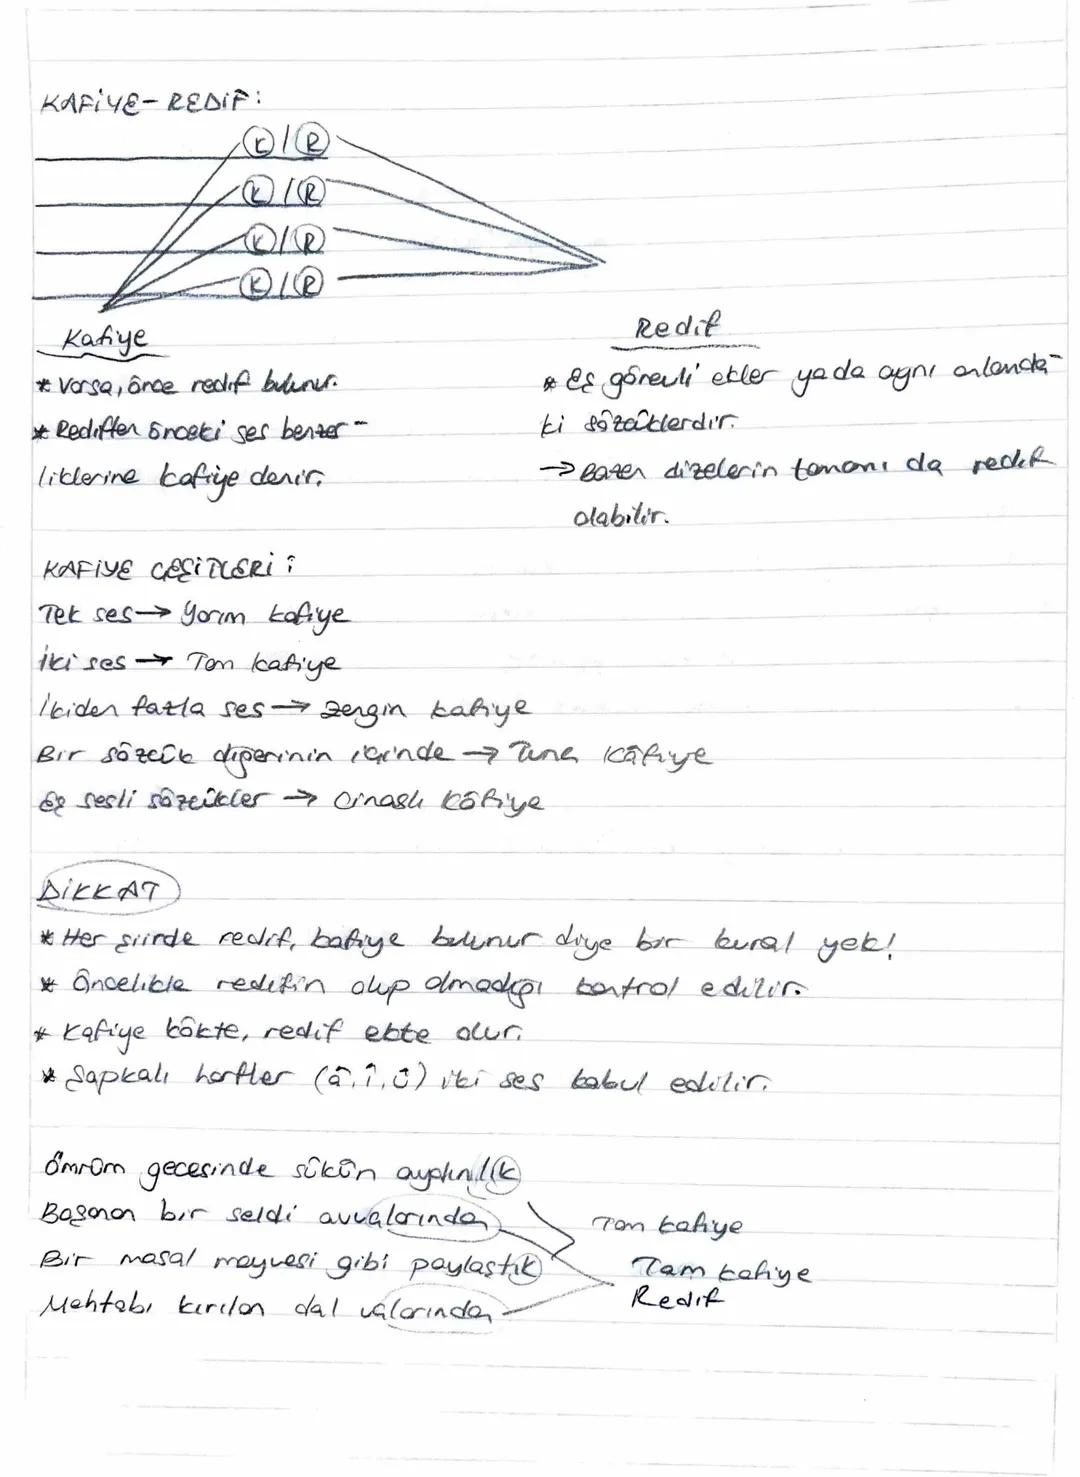 KAFİYE-REDİF:
K / R
K / R
K / R
K / R
Kafiye
* Varsa, önce redif bulunur.
* Rediften önceki ses benzer-
liklerine kafiye denir.
Redif
* Eş görevli ekler yada aynı anlamda-
ki sözcüklerdir.
→ Bazen dizelerin tamamı da redif
olabilir.
KAFİYE ÇEŞİTLERİ :
Tek ses → Yarım kafiye
İki ses → Tam kafiye
İkiden fazla ses → Zengin kafiye
Bir sözcük diğerinin içinde → Tunç Kâfiye
Eş sesli sözcükler → Cinaslı kâfiye
DİKKAT
* Her şiirde redif, kafiye bulunur diye bir kural yok!
* Öncelikle redifin olup olmadığı kontrol edilir.
* Kafiye kökte, redif ekte olur.
* Şapkalı harfler (â, î, û) iki ses kabul edilir.
Ömrüm gecesinde sükûn aydınlık
Boşanan bir seldi avuçlarından
Bir masal meyvesi gibi paylaştık
Mehtabı kırılan dal uçlarından
Tam kafiye
Tam kafiye
Redif